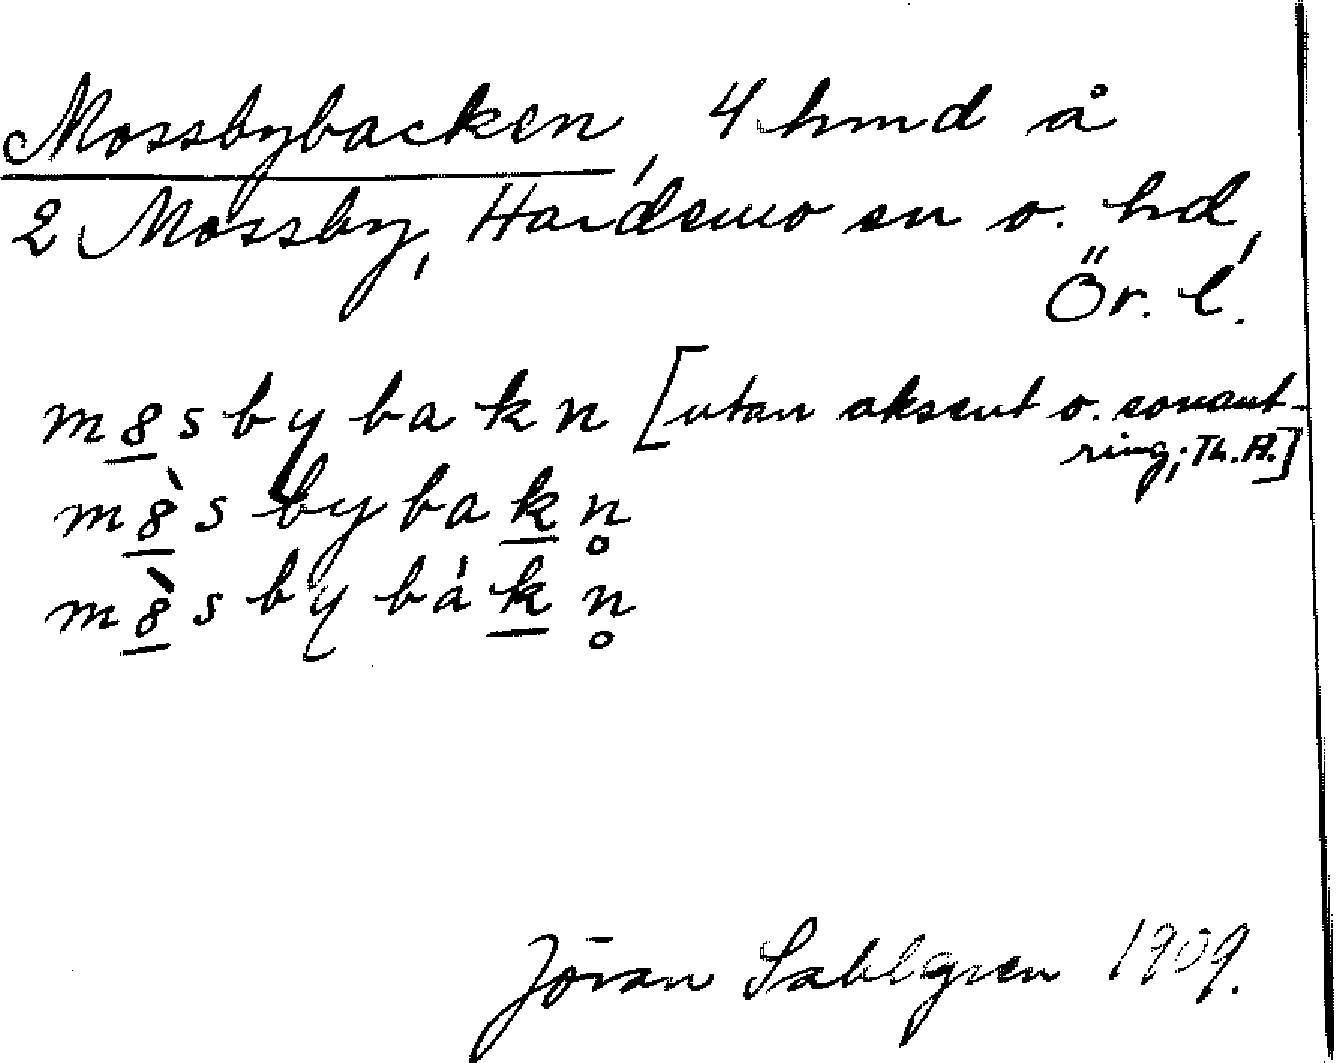 Mossbybacken, 4 hmd å
2 Mossby, Hardemo sn o. hd,
Ör. l.
m8sbybakn [utan aksent o. sonant-
ring; Th. A.]
m8̀sbybakn̥
m8̀sbybákn̥
Jöran Sahlgren 1909.